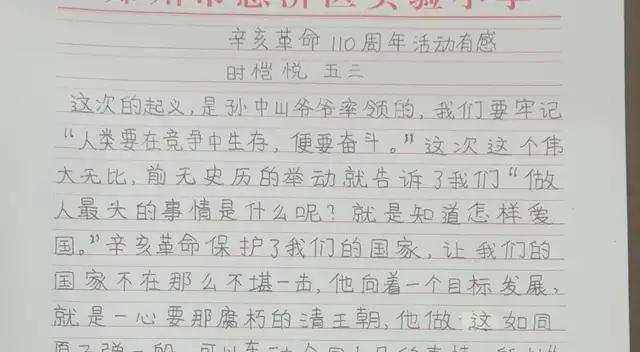 郑州市惠济区实验小学
辛亥革命110周年活动有感
时恺悦 五三
这次的起义，是孙中山爷爷率领的，我们要牢记
“人类要在竞争中生存，便要奋斗。”这次这个伟
大无比，前无史历的举动就告诉了我们“做
人最大的事情是什么呢？就是知道怎样爱
国。”辛亥革命保护了我们的国家，让我们的
国家不在那么不堪一击，他向着一个目标发展，
就是一心要那腐朽的清王朝，他做这如同
原子弹一般，可以